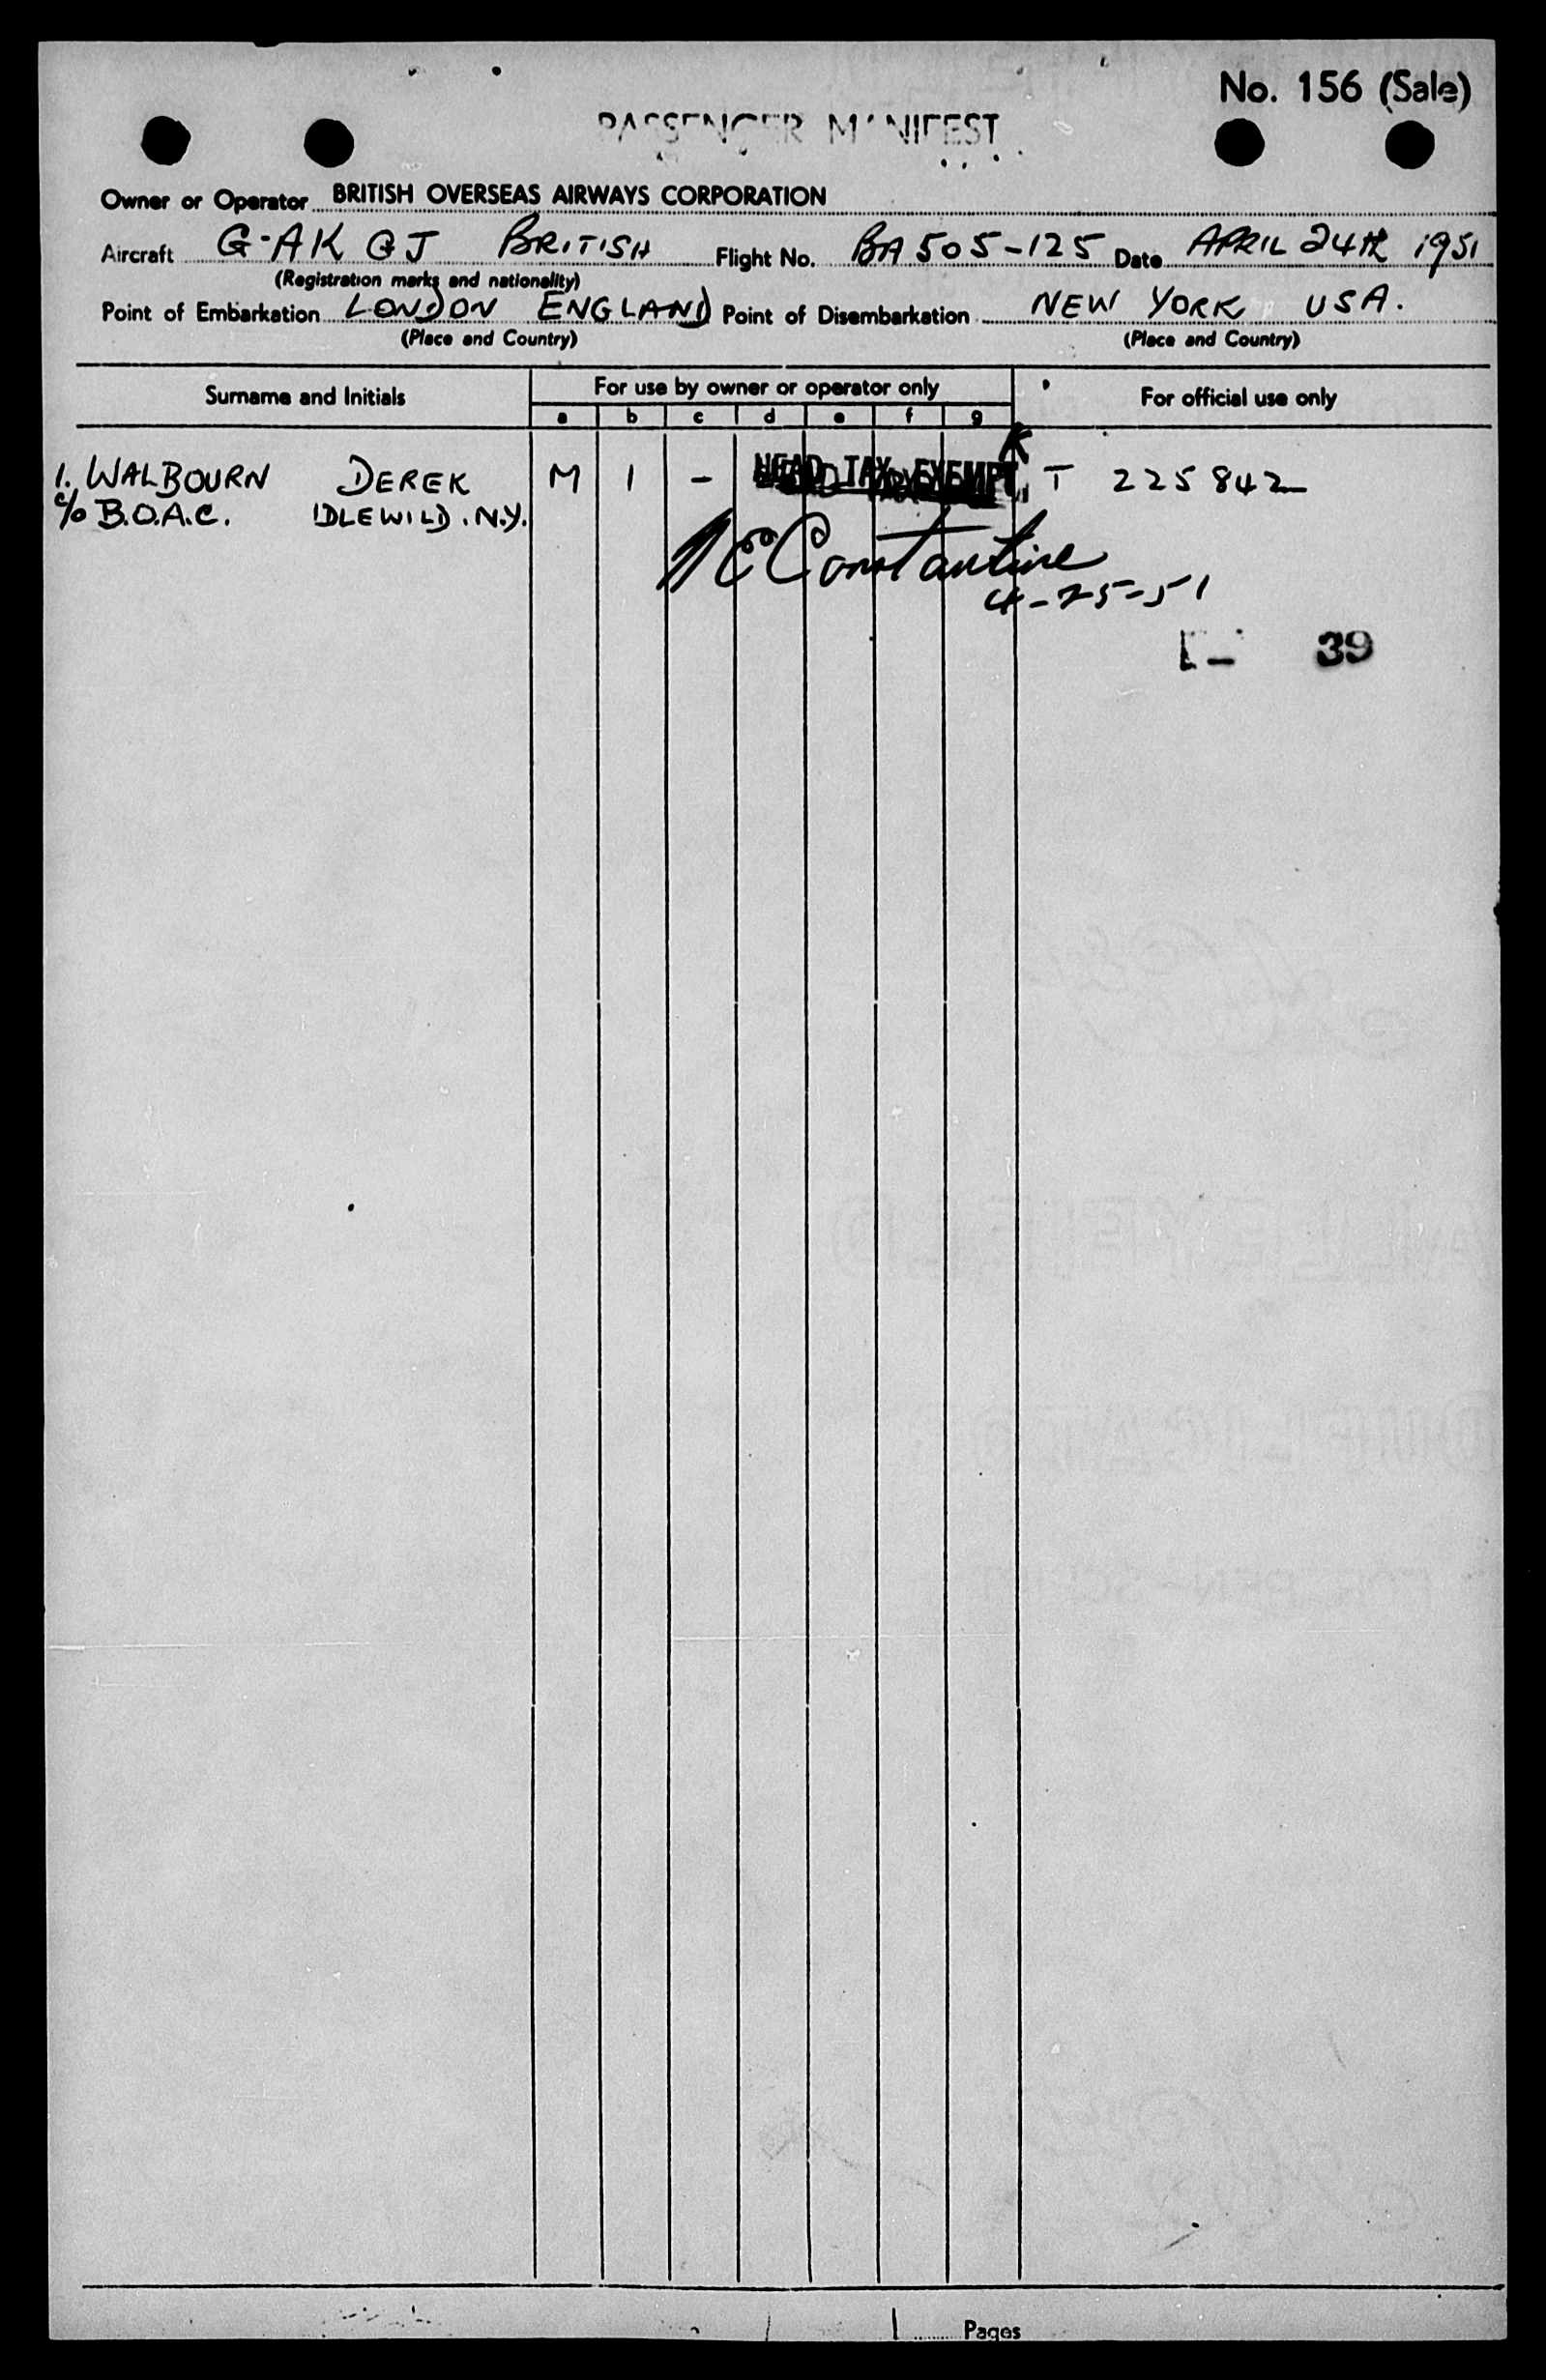 No. 156 (Sale)
PASSENGER MANIFEST
Owner or Operator BRITISH OVERSEAS AIRWAYS CORPORATION
Aircraft G-AKGJ BRITISH Flight No. BA 505-125 Date APRIL 24th 1951
(Registration marks and nationality)
Point of Embarkation LONDON ENGLAND Point of Disembarkation NEW YORK USA.
(Place and Country) (Place and Country)
Surname and Initials For use by owner or operator only For official use only
a b c d e f g
1. WALBOURN DEREK M 1 - HEAD TAX EXEMPT T 225842
c/o B.O.A.C. IDLEWILD. N.Y.
Constantine
4-25-51
39
1 Pages